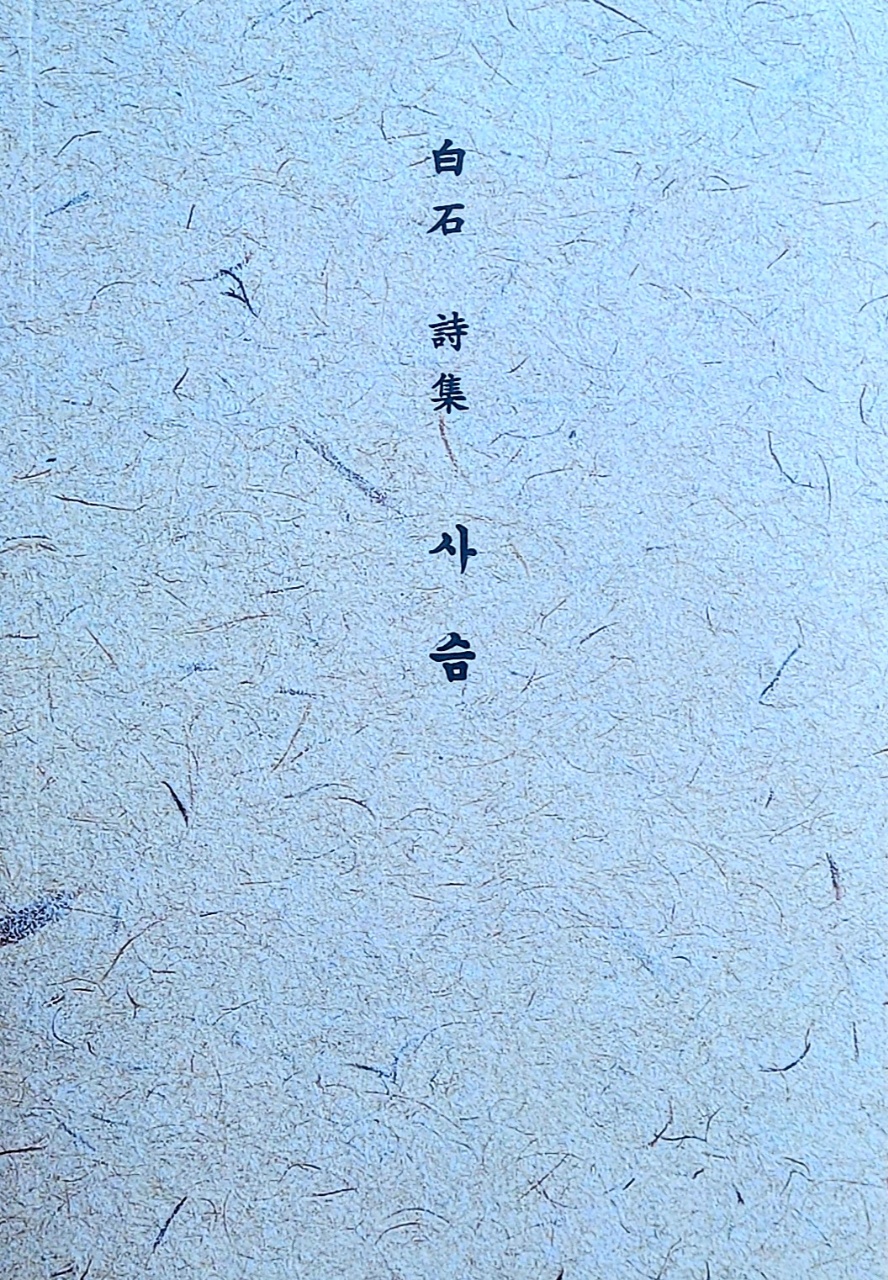 白石 詩集 사슴